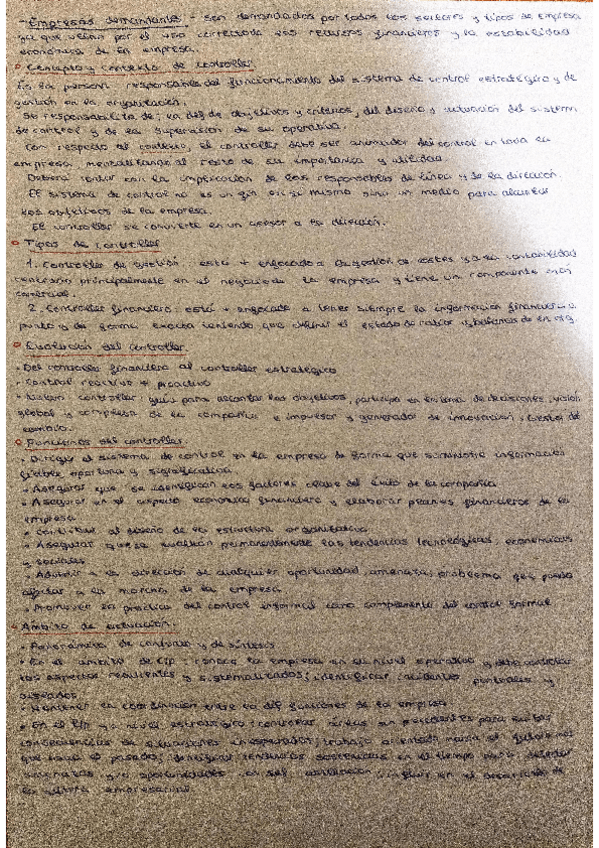 - Empresas demandantes - son demandados por todos los sectores y tipos de empresa
ya que velan por el uso correcto de los recursos financieros y la estabilidad
económica de la empresa.
Concepto y contexto de controller
Es la persona responsable del funcionamiento del sistema de control estratégico y de
gestión en la organización.
Se responsabiliza de: la def de objetivos y criterios, del diseño y actuación del sistema
de control y de la supervisión de su operativa.
Con respecto al contexto, el controller debe ser animador del control en toda la
empresa, mentalizando al resto de su importancia y utilidad.
Deberá contar con la implicación de los responsables de línea y de la dirección.
El sistema de control no es un fin en si mismo sino un medio para alcanzar
los objetivos de la empresa.
El controller se convierte en un asesor a la dirección.
Tipos de controller
1. Controller de gestión: está + enfocado a la gestión de costes y a la contabilidad
principalmente en el negocio de la empresa y tiene un componente más
2. Controller financiero está + enfocado a tener siempre la información financiera a
punto y de forma exacta teniendo que definir el estado de ratios y balances de la org.
Evolución del controller
• Del controller financiero al controller estratégico
• Control reactivo → proactivo
• Nuevo controller: guía para alcanzar los objetivos, participa en la toma de decisiones, visión
global y completa de la compañía e impulsor y generador de innovación. Gestor del
cambio.
Funciones del controller
• Dirigir el sistema de control en la empresa de forma que suministre información
fiable, oportuna y significativa.
• Asegurar que se identifican los factores clave del éxito de la compañía
• Asegurar en el aspecto económico financiero y elaborar planes financieros de la
empresa
• Contribuir al diseño de la estructura organizativa
• Asegurar que se evalúan permanentemente las tendencias tecnológicas, económicas
y sociales
• Advertir a la dirección de cualquier oportunidad, amenaza, problema que pueda
afectar a la marcha de la empresa
• Promover la práctica del control informal como complemento del control formal
Ámbito de actuación.
• Panorámica de conjunto y de síntesis
• En el ámbito de C/p: conoce la empresa en su nivel operativo y debe controlar
los aspectos recurrentes y sistematizados; identificar incidentes puntuales y
aislados
• Mantener la coordinación entre la dif funciones de la empresa
• En el l/p y a nivel estratégico: controlar áreas sin precedentes para evitar
consecuencias de situaciones inesperadas; trabajo orientado hacia el futuro más
que hacia el pasado; identificar tendencias sostenidas en el tiempo para detectar
amenazas y/o oportunidades; influir en el desarrollo de
la cultura empresarial.